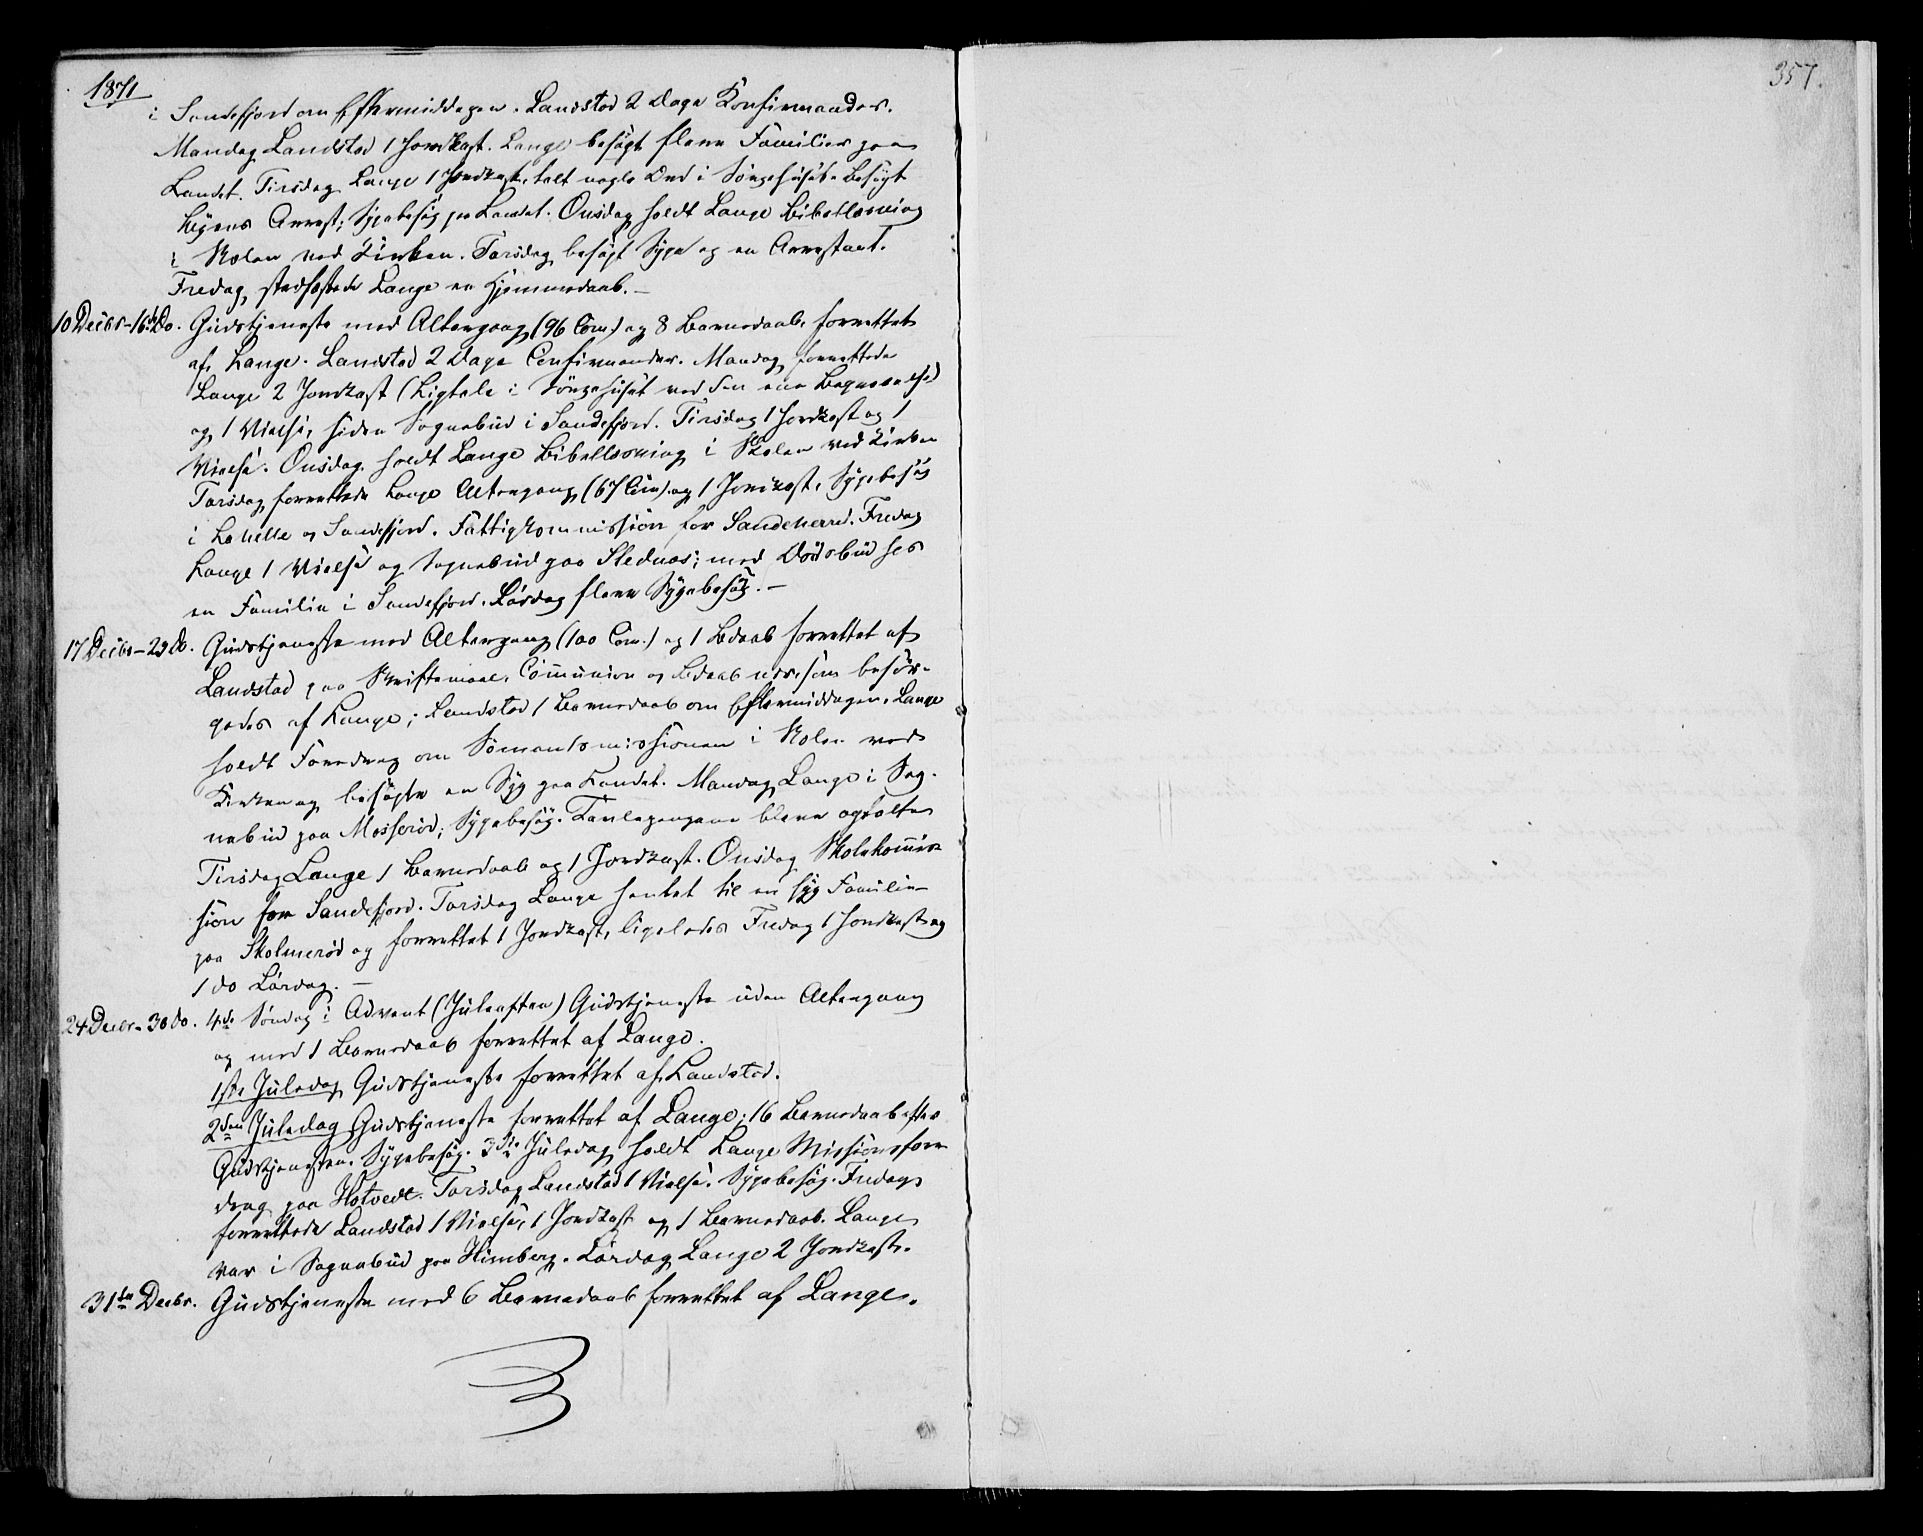 1871
i Sandefjord om Eftermiddagen. Landstad 2 Dage Konfirmander.
Mandag Landstad 1 Jordkast. Lange besøgt flere Familier paa
Landet. Tirsdag Lange 1 Jordkast, talt nogle Ord i Sørgehuset. Besøgt
Byens Arrest; Sygebesøg paa Landet. Onsdag holdt Lange Bibellæsning
i Skolen ved Kirken. Torsdag besøgt Syge og en Arrestant.
Fredag stadfæstede Lange en Hjemmedaab. –
10 Decbr–16de Do. Gudstjeneste med Altergang (96 Com.) og 8 Barnedaab, forrettet
af Lange. Landstad 2 Dage Confirmander. Mandag forrettede
Lange 2 Jordkast (Ligtale i Sørgehuset ved den ene Begravelse)
og 1 Vielse, siden Sognebud i Sandefjord. Tirsdag 1 Jordkast og 1
Vielse. Onsdag holdt Lange Bibellæsning i Skolen ved Kirken
Torsdag forrettede Lange Altergang (67 Com.) og 1 Jordkast, Sygebesøg
i Lahelle og Sandefjord. Fattigkommission for Sandeherred. Fredag
Lange 1 Vielse og Sognebud paa Slednæs; med Dødsbud hos
en Familie i Sandefjord. Lørdag flere Sygebesøg. –
17 Decbr–23 Do. Gudstjeneste med Altergang (100 Com.) og 1 Bdaab forrettet af
Landstad paa Skriftemaal, Communion og Bdaab nær, som besør-
gedes af Lange; Landstad 1 Barnedaab om Eftermiddagen. Lange
holdt Foredrag om Sømandsmissionen i Skolen ved
Kirken og besøgte en Syg paa Landet. Mandag Lange i Sog-
nebud paa Mosserød; Sygebesøg. Tirsdag
Tirsdag Lange 1 Barnedaab og 1 Jordkast. Onsdag Skolekommis-
sion for Sandefjord. Torsdag Lange hentet til en syg Familie
paa Skolmerød og forrettet 1 Jordkast, ligeledes Fredag 1 Jordkast og
1 do Lørdag. –
24 Decbr–30 do. 4de Søndag i Advent (Juleaften) Gudstjeneste uden Altergang
og med 1 Barnedaab forrettet af Lange.
1ste Juledag Gudstjeneste forrettet af Landstad.
2den Juledag Gudstjeneste forrettet af Lange; 16 Barnedaab efter
Gudstjenesten. Sygebesøg. 3die Juledag holdt Lange Missionsfore-
drag paa Hotvedt. Torsdag Landstad 1 Vielse. Sygebesøg. Fredag
forrettede Landstad 1 Vielse, 1 Jordkast og 1 Barnedaab. Lange
var i Sognebud paa Himberg. Lørdag Lange 2 Jordkast.
31te Decbr. Gudstjeneste med 6 Barnedaab forrettet af Lange.
357.